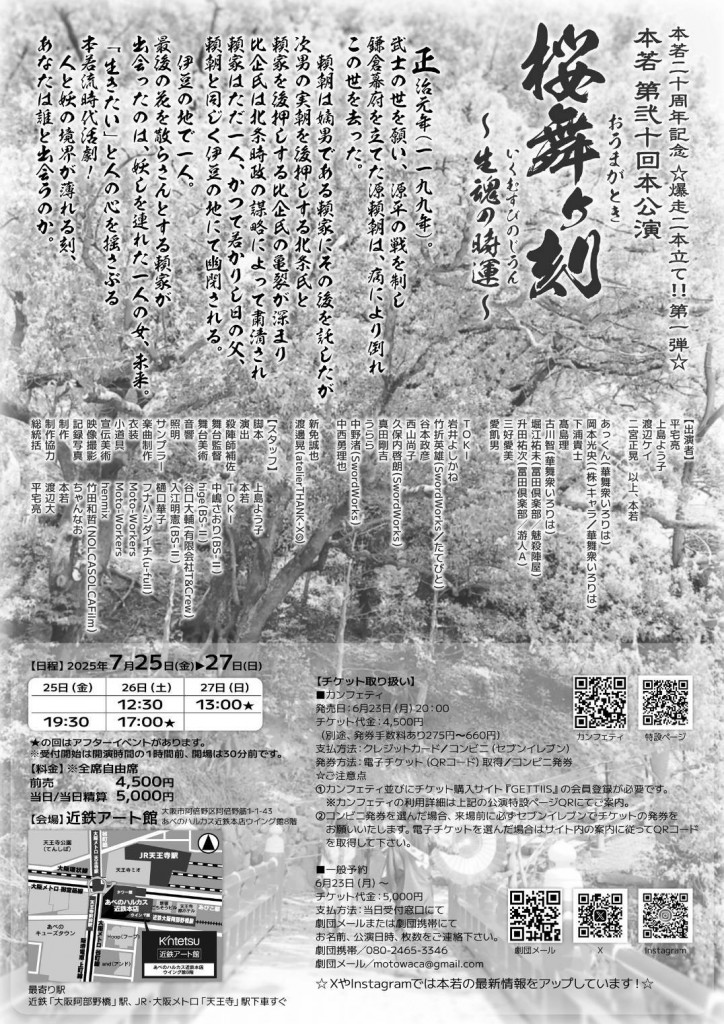 本若二十周年記念 ☆爆走二本立て!! 第一弾☆
本若 第弐十回本公演
おうまがとき
桜舞ヶ刻
いくむすびのじうん
～生魂の時運～
正治元年(一一九九年)。
武士の世を願い、源平の戦を制し
鎌倉幕府を立てた源頼朝は、病により倒れ
この世を去った。
頼朝は嫡男である頼家にその後を託したが
次男の実朝を後押しする北条氏と
頼家を後押しする比企氏の亀裂が深まり
比企氏は北条時政の謀略によって粛清され
頼家はただ一人、かつて若かりし日の父、
頼朝と同じく伊豆の地にて幽閉される。
伊豆の地で一人。
最後の花を散らさんとする頼家が
出会ったのは、妖しを連れた一人の女、未来。
「生きたい」と人の心を揺さぶる
本若流時代活劇!
人と妖の境界が薄れる刻、
あなたは誰と出会うのか。
【出演者】
平宅亮
上島よう子
渡辺ケイ
二宮正晃 以上、本若
あっくん(華舞衆いろりは)
岡本光央((株)キャラ/華舞衆いろりは)
下浦貴士
髙島理
古川智(華舞衆いろりは)
堀江祐未(冨田倶楽部/魅殺陣屋)
升田祐次(冨田倶楽部/游人A)
三好愛美
愛凱男
TOKI
岩井よしかね
竹折英雄(SwordWorks/たてびと)
谷本政彦
西山尚子
久保内啓朗(SwordWorks)
真田剛吉
うらら
中野渚(SwordWorks)
中西勇理也
新免誠也
渡邊晃(atelierTHANK-X◎)
【スタッフ】
脚本 上島よう子
演出 本若
殺陣師補佐 TOKI
舞台監督 中嶋さおり(BS-Ⅱ)
舞台美術 hige(BS-Ⅱ)
音響 谷口大輔(有限会社T&Crew)
照明 入江明憲(BS-Ⅱ)
サンプラー 樋口華子
楽曲制作 フナハシダイチ(u-full)
衣装 Moto-Workers
小道具 Moto-Workers
宣伝美術 henmix
映像撮影 竹田和哲(NOLCASOLCAFilm)
記録写真 ちゃんなお
制作 本若
制作協力 渡辺大
総統括 平宅亮
【日程】2025年7月25日(金)▶27日(日)
25日(金) 26日(土) 27日(日)
12:30 13:00★
19:30 17:00★
★の回はアフターイベントがあります。
※受付開始は開演時間の1時間前、開場は30分前です。
【料金】※全席自由席
前売 4,500円
当日/当日精算 5,000円
【会場】近鉄アート館
大阪市阿倍野区阿倍野筋1-1-43
あべのハルカス近鉄本店ウイング館8階
天王寺公園
(てんしば)
JR天王寺駅
天王寺ミオ
大阪環状線
大阪メトロ 御堂筋線
タワー館
あべのハルカス
近鉄本店
ウイング館
あべの
キューズタウン
Hoop(フープ)
and(アンド)
Kintetsu
近鉄アート館
あべのハルカス近鉄本店
ウイング館8階
最寄り駅
近鉄「大阪阿部野橋」駅、JR・大阪メトロ「天王寺」駅下車すぐ
【チケット取り扱い】
■カンフェティ
発売日:6月23日(月)20:00
チケット代金:4,500円
(別途、発券手数料あり275円〜660円)
支払方法:クレジットカード/コンビニ(セブンイレブン)
発券方法:電子チケット(QRコード)取得/コンビニ発券
☆ご注意点
①カンフェティ並びにチケット購入サイト『GETTIIS』の会員登録が必要です。
※カンフェティの利用詳細は上記の公演特設ページQRにてご案内。
②コンビニ発券を選んだ場合、来場前に必ずセブンイレブンでチケットの発券を
お願いいたします。電子チケットを選んだ場合はサイト内の案内に従ってQRコード
を取得して下さい。
カンフェティ
特設ページ
■一般予約
6月23日(月)〜
チケット代金:5,000円
支払方法:当日受付窓口にて
劇団メールまたは劇団携帯にて
お名前、公演日時、枚数をご連絡下さい。
劇団携帯/080-2465-3346
劇団メール/motowaca@gmail.com
劇団メール
X
Instagram
☆XやInstagramでは本若の最新情報をアップしています!☆